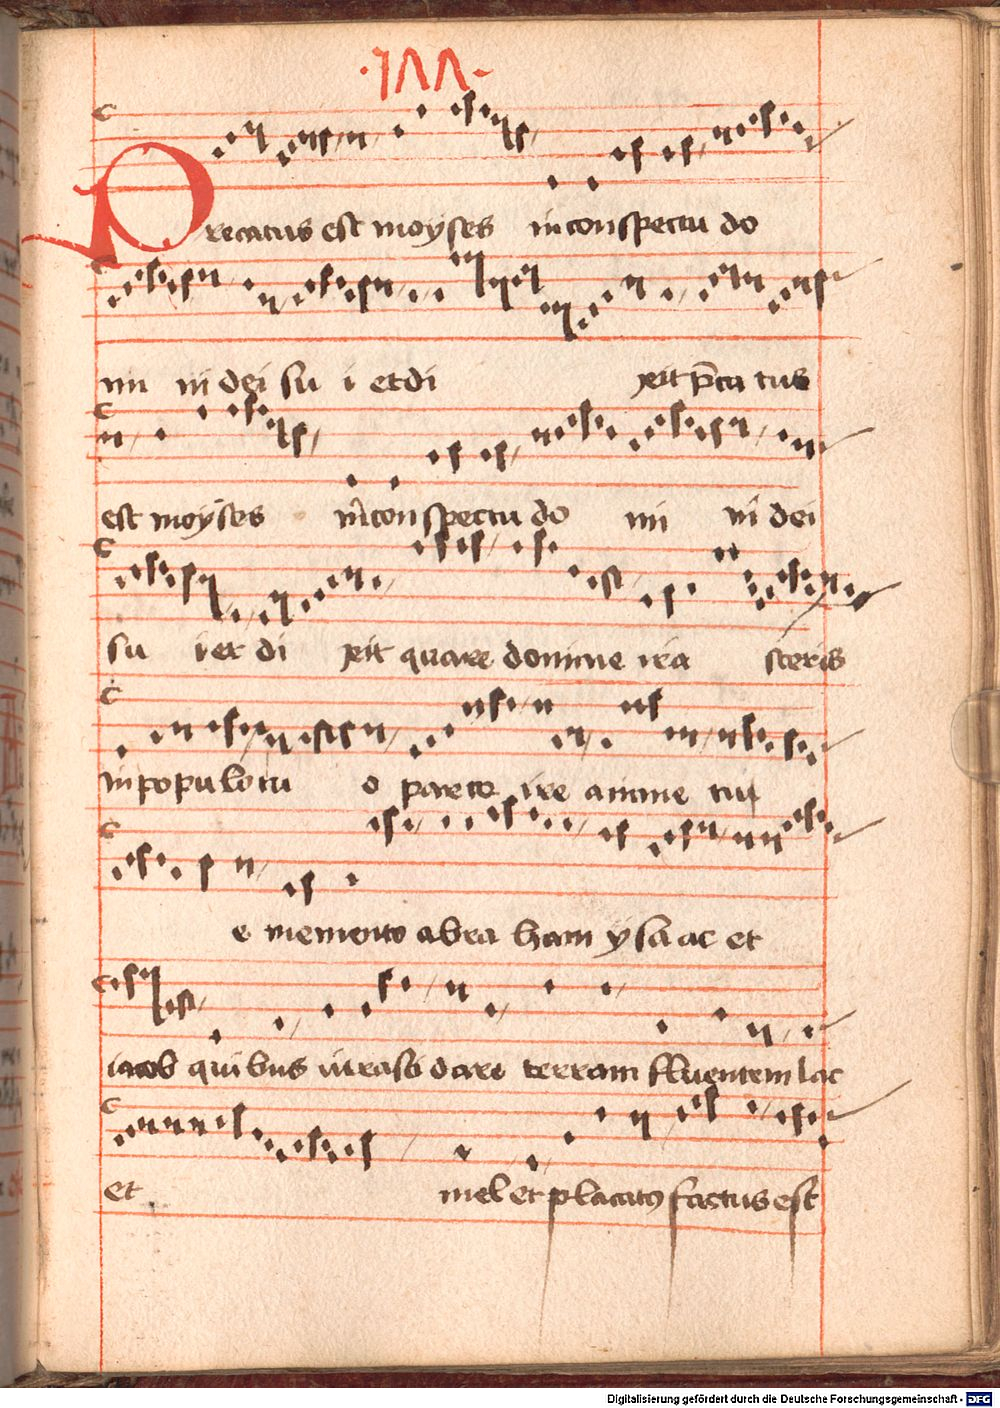 ·1ΛΛ·
Precatus est moyses in conspectu do
mi ni dei su i et di xit p̄ca tus
est moyses in conspectu do mi ni dei
su i et di xit quare domine ira sceris
in populo tu o parce ire anime tu
e memento abra ham ysa ac et
iacob quibus iurasti dare terram fluentem lac
et mel et placatꝰ factus est
Digitalisierung gefördert durch die Deutsche Forschungsgemeinschaft - DFG